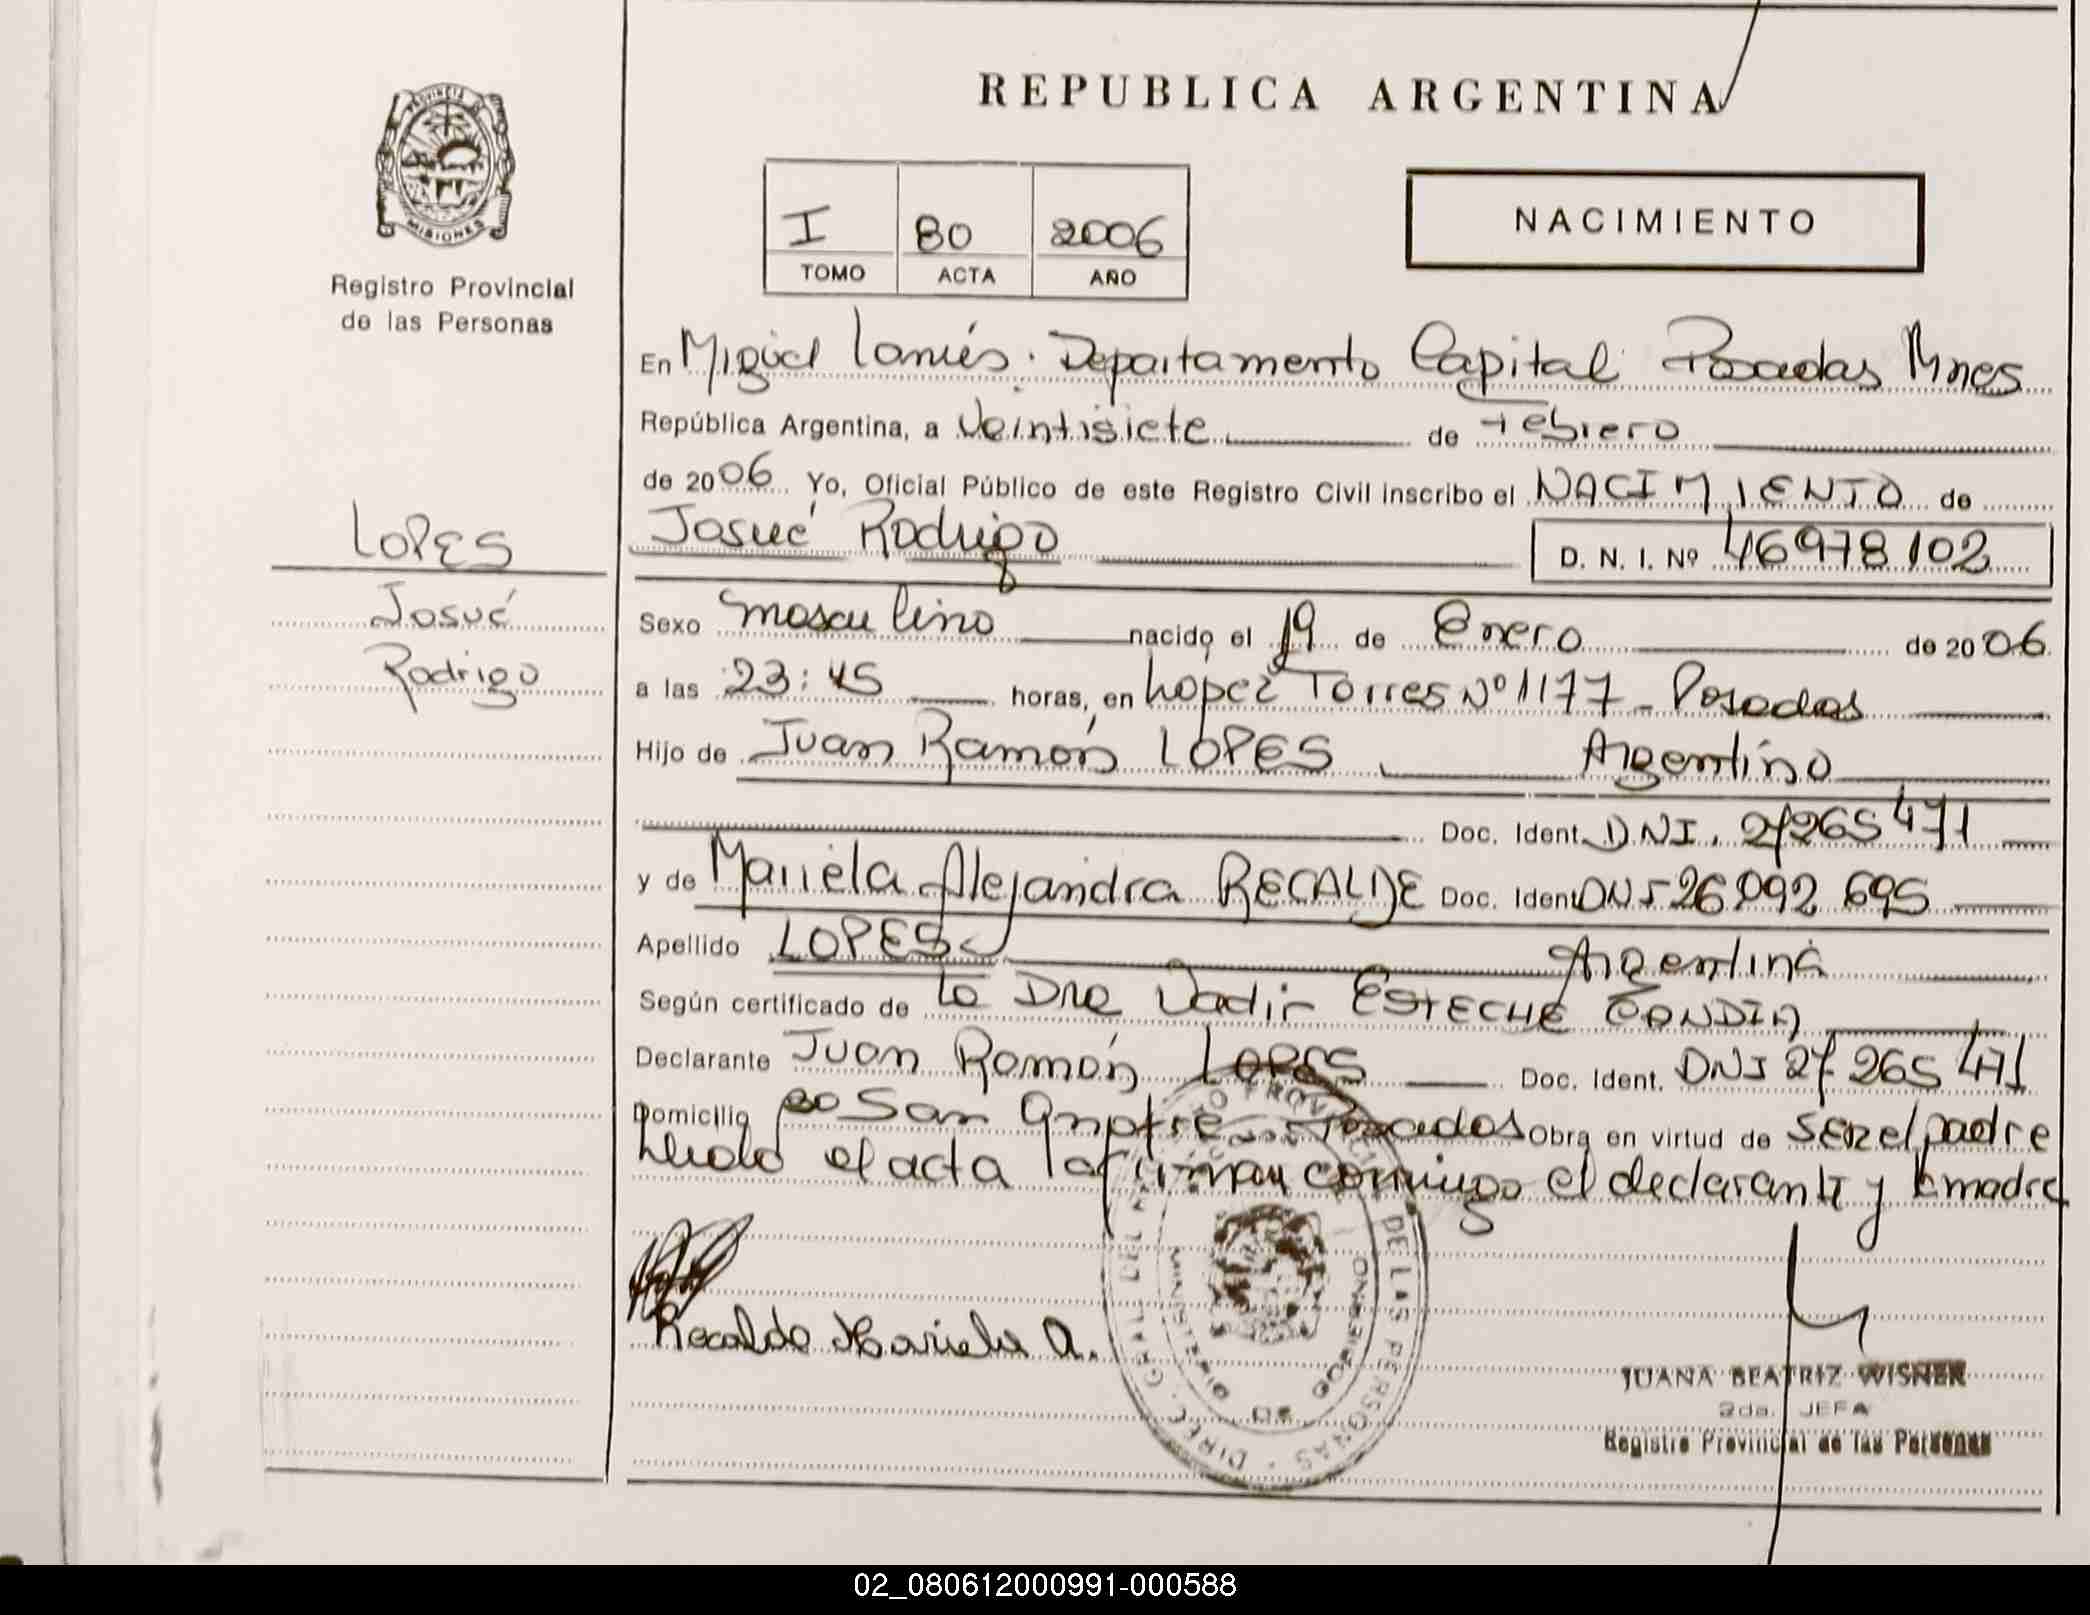 REPUBLICA ARGENTINA
PROVINCIA DE
MISIONES
Registro Provincial
de las Personas
I 80 2006
TOMO ACTA AÑO
NACIMIENTO
En Miguel Lanús. Departamento Capital Posadas Mnes
República Argentina, a Veintisiete de Febrero
de 2006 Yo, Oficial Público de este Registro Civil inscribo el NACIMIENTO de
LOPES
Josué Rodrigo D. N. I. Nº 46978102
Josué
Rodrigo
Sexo masculino nacido el 19 de Enero de 2006
a las 23:45 horas, en López Torres Nº 1177 - Posadas
Hijo de Juan Ramón LOPES Argentino
Doc. Ident. DNI. 27265471
y de Mariela Alejandra RECALDE Doc. Ident DNI 26092695
Apellido LOPES Argentina
Según certificado de la Dra Yadir ESTECHE CONDIA
Declarante Juan Ramón LOPES Doc. Ident. DNI 27 265 471
Domicilio San Posadas Obra en virtud de ser el padre
Leida el acta la firman conmigo el declarante y la madre
Recalde Mariela A.
DIREC. GRAL. DEL REGISTRO PROVINCIAL DE LAS PERSONAS
MINISTERIO DE GOBIERNO
JUANA BEATRIZ WISNER
2da. JEFA
Registro Provincial de las Personas
02_080612000991-000588